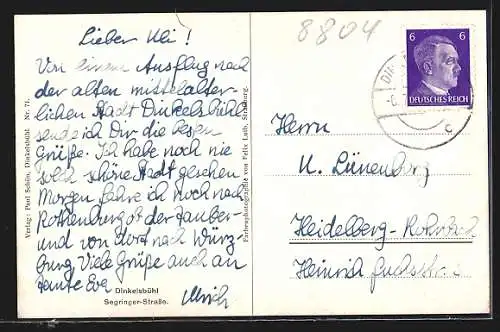 8804
Lieber Uli!
Von einem Ausflug nach
der alten mittelalter-
lichen Stadt Dinkelsbühl
sende ich Dir diesen
Grüße. Ich habe noch nie
solch schöne Stadt gesehen
Morgen fahre ich noch nach
Rothenburg ob der Tauber
und von dort nach Würz-
burg Viele Grüße auch an
Tante Eva
Ulrich
Dinkelsbühl
Segringer-Straße.
Verlag: Paul Schön, Dinkelsbühl Nr. 71.
Farbenphotographie von Felix Luib, Straßburg.
6 6
DEUTSCHES REICH
c
Herrn
U. Lünenborg
Heidelberg-Rohrbach
Heinrich Fuchsstr.